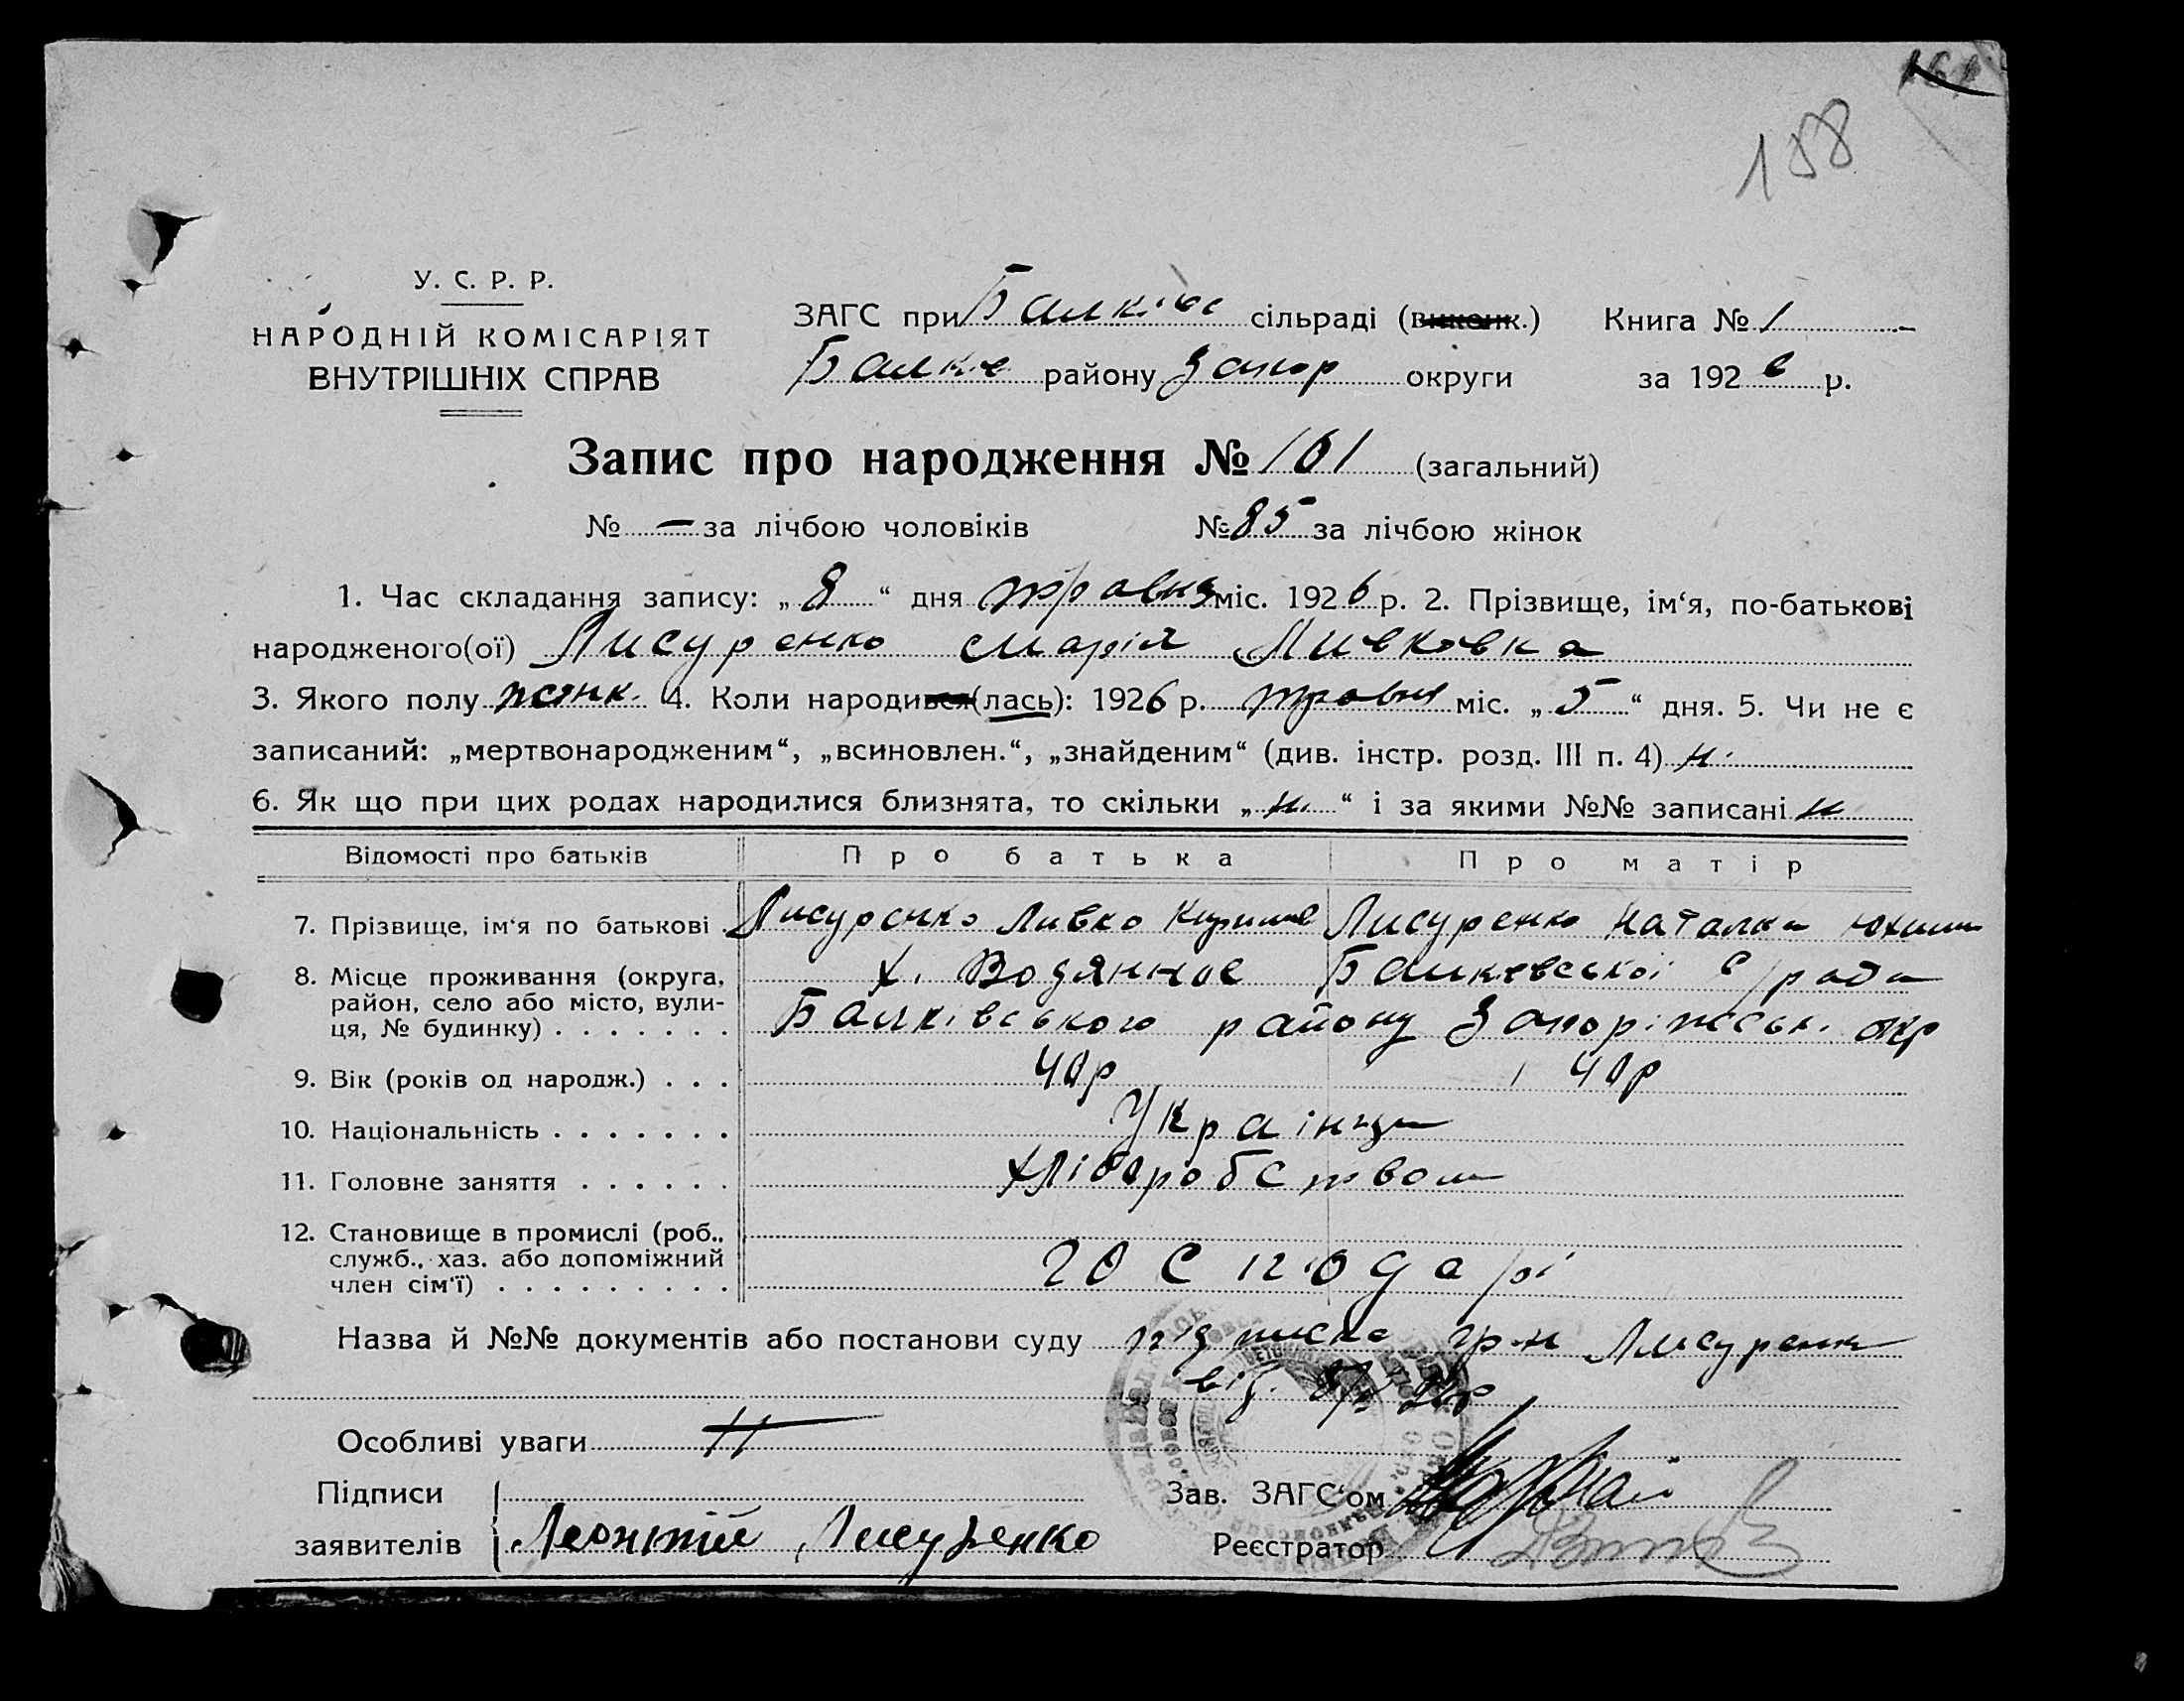 188
У. С. Р. Р.
НАРОДНІЙ КОМІСАРІЯТ
ВНУТРІШНІХ СПРАВ
ЗАГС при Балківс сільраді (виконк.) Книга № 1
Балків району Запор округи за 1926 р.
Запис про народження № 161 (загальний)
№ — за лічбою чоловіків № 85 за лічбою жінок
1. Час складання запису: „ 8 “ дня травня міс. 1926 р. 2. Прізвище, ім‘я, по-батькові
народженого(ої) Лисуренко Марія Ливковна
3. Якого полу жінк. 4. Коли народився(лась): 1926 р. травня міс. „ 5 “ дня. 5. Чи не є
записаний: „мертвонародженим“, „всиновлен.“, „знайденим“ (див. інстр. розд. III п. 4) н.
6. Як що при цих родах народилися близнята, то скільки „ н. “ і за якими №№ записані н
Відомості про батьків Про батька Про матір
7. Прізвище, ім‘я по батькові . Лисуренко Ливко Лисуренко Наталка Юхим
8. Місце проживання (округа, х. Водянное Балковської с/ради
район, село або місто, вули- Балківського району Запоріжськ. окр
ця, № будинку) . . . . . . .
9. Вік (років од народж.) . . . 40р 40р
10. Національність . . . . . . . Українци
11. Головне заняття . . . . . . Хліборобством
12. Становище в промислі (роб.,
служб., хаз. або допоміжний господарі
член сім‘ї) . . . . . . . . .
Назва й №№ документів або постанови суду підписка гр-н Лисуренк
від.
Особливі уваги Н
Підписи Зав. ЗАГС‘ом
заявителів Леонтій Лисуренко Реєстратор